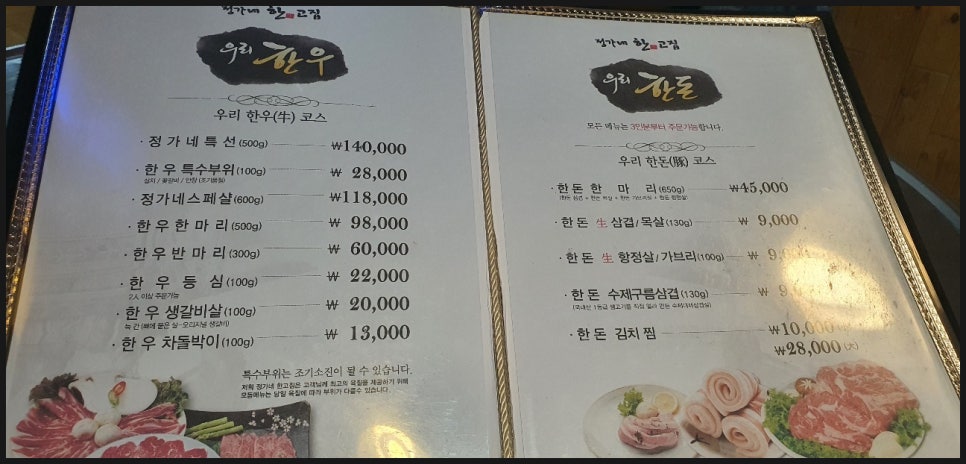 정가네 한고집
우리 한우
우리 한우(牛) 코스
· 정가네특선(500g) ₩140,000
· 한우 특수부위(100g) ₩ 28,000
· 정가네스페샬(600g) ₩118,000
· 한우한마리(500g) ₩ 98,000
· 한우반마리(300g) ₩ 60,000
· 한우등심(100g) ₩ 22,000
2人 이상 주문가능
· 한우 생갈비살(100g) ₩ 20,000
늑간(뼈에 붙은 살-오리지널 생갈비)
· 한우차돌박이(100g) ₩ 13,000
특수부위는 조기소진이 될 수 있습니다.
저희 정가네 한고집은 고객님께 최고의 육질을 제공하기 위해
모든메뉴는 당일 육질에 따라 부위가 다를수 있습니다.
정가네 한고집
우리 한돈
모든 메뉴는 3인분부터 주문가능합니다.
우리 한돈(豚) 코스
· 한돈한마리(650g) ₩45,000
· 한돈 生 삼겹/목살(130g) ₩ 9,000
· 한돈 生 항정살/가브리(100g) ₩ 9,
· 한돈 수제구름삼겹(130g) ₩ 9
· 한돈 김치찜 ₩10,000
₩28,000(大)